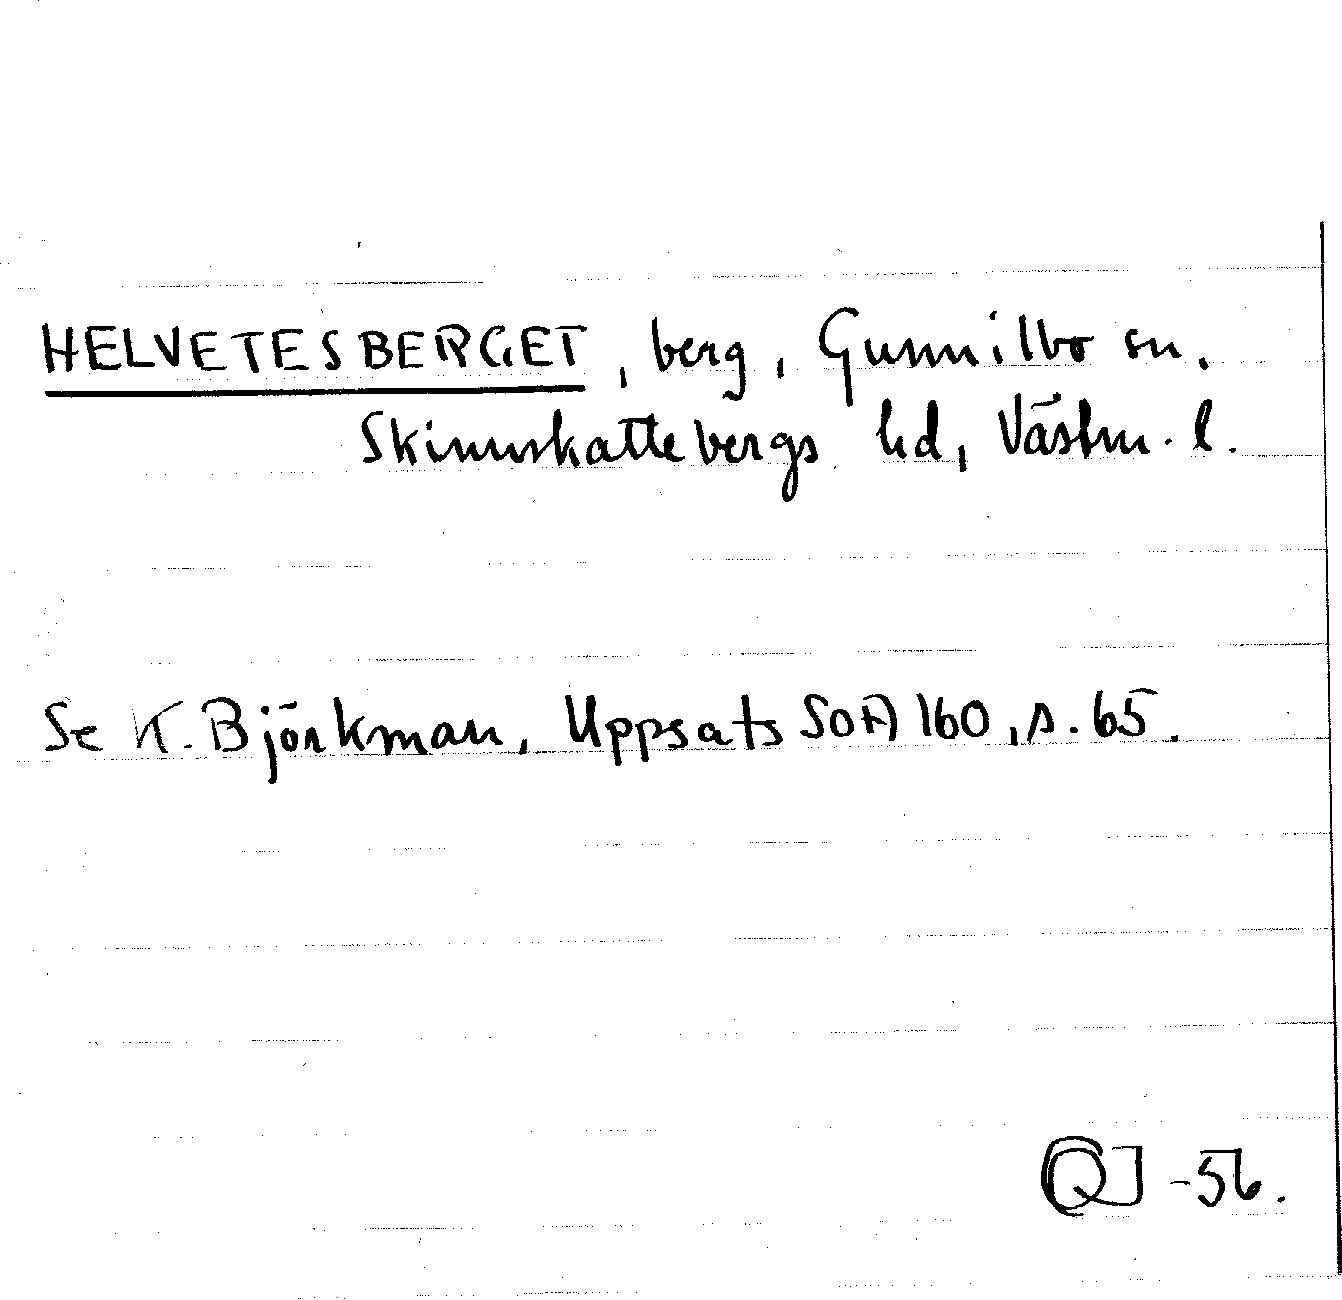 HELVETESBERGET, berg, Gunnilbo sn.
Skinnskattebergs hd, Västm. l.
Se K. Björkman, Uppsats SOA 160, s. 65.
-56.